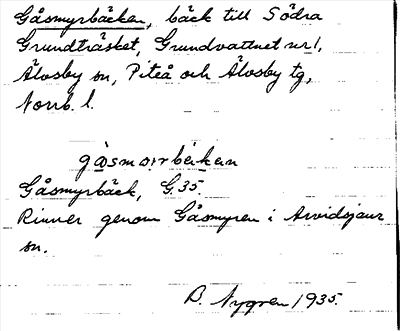 Gåsmyrbäcken, bäck till Södra
Grundträsket, Grundvattnet nr 1,
Älvsby sn, Piteå och Älvsby tg,
Norrb. l.
Gåsmyrbäck, G.35.
Rinner genom Gåsmyren i Arvidsjaur
sn.
B. Nygren 1935.